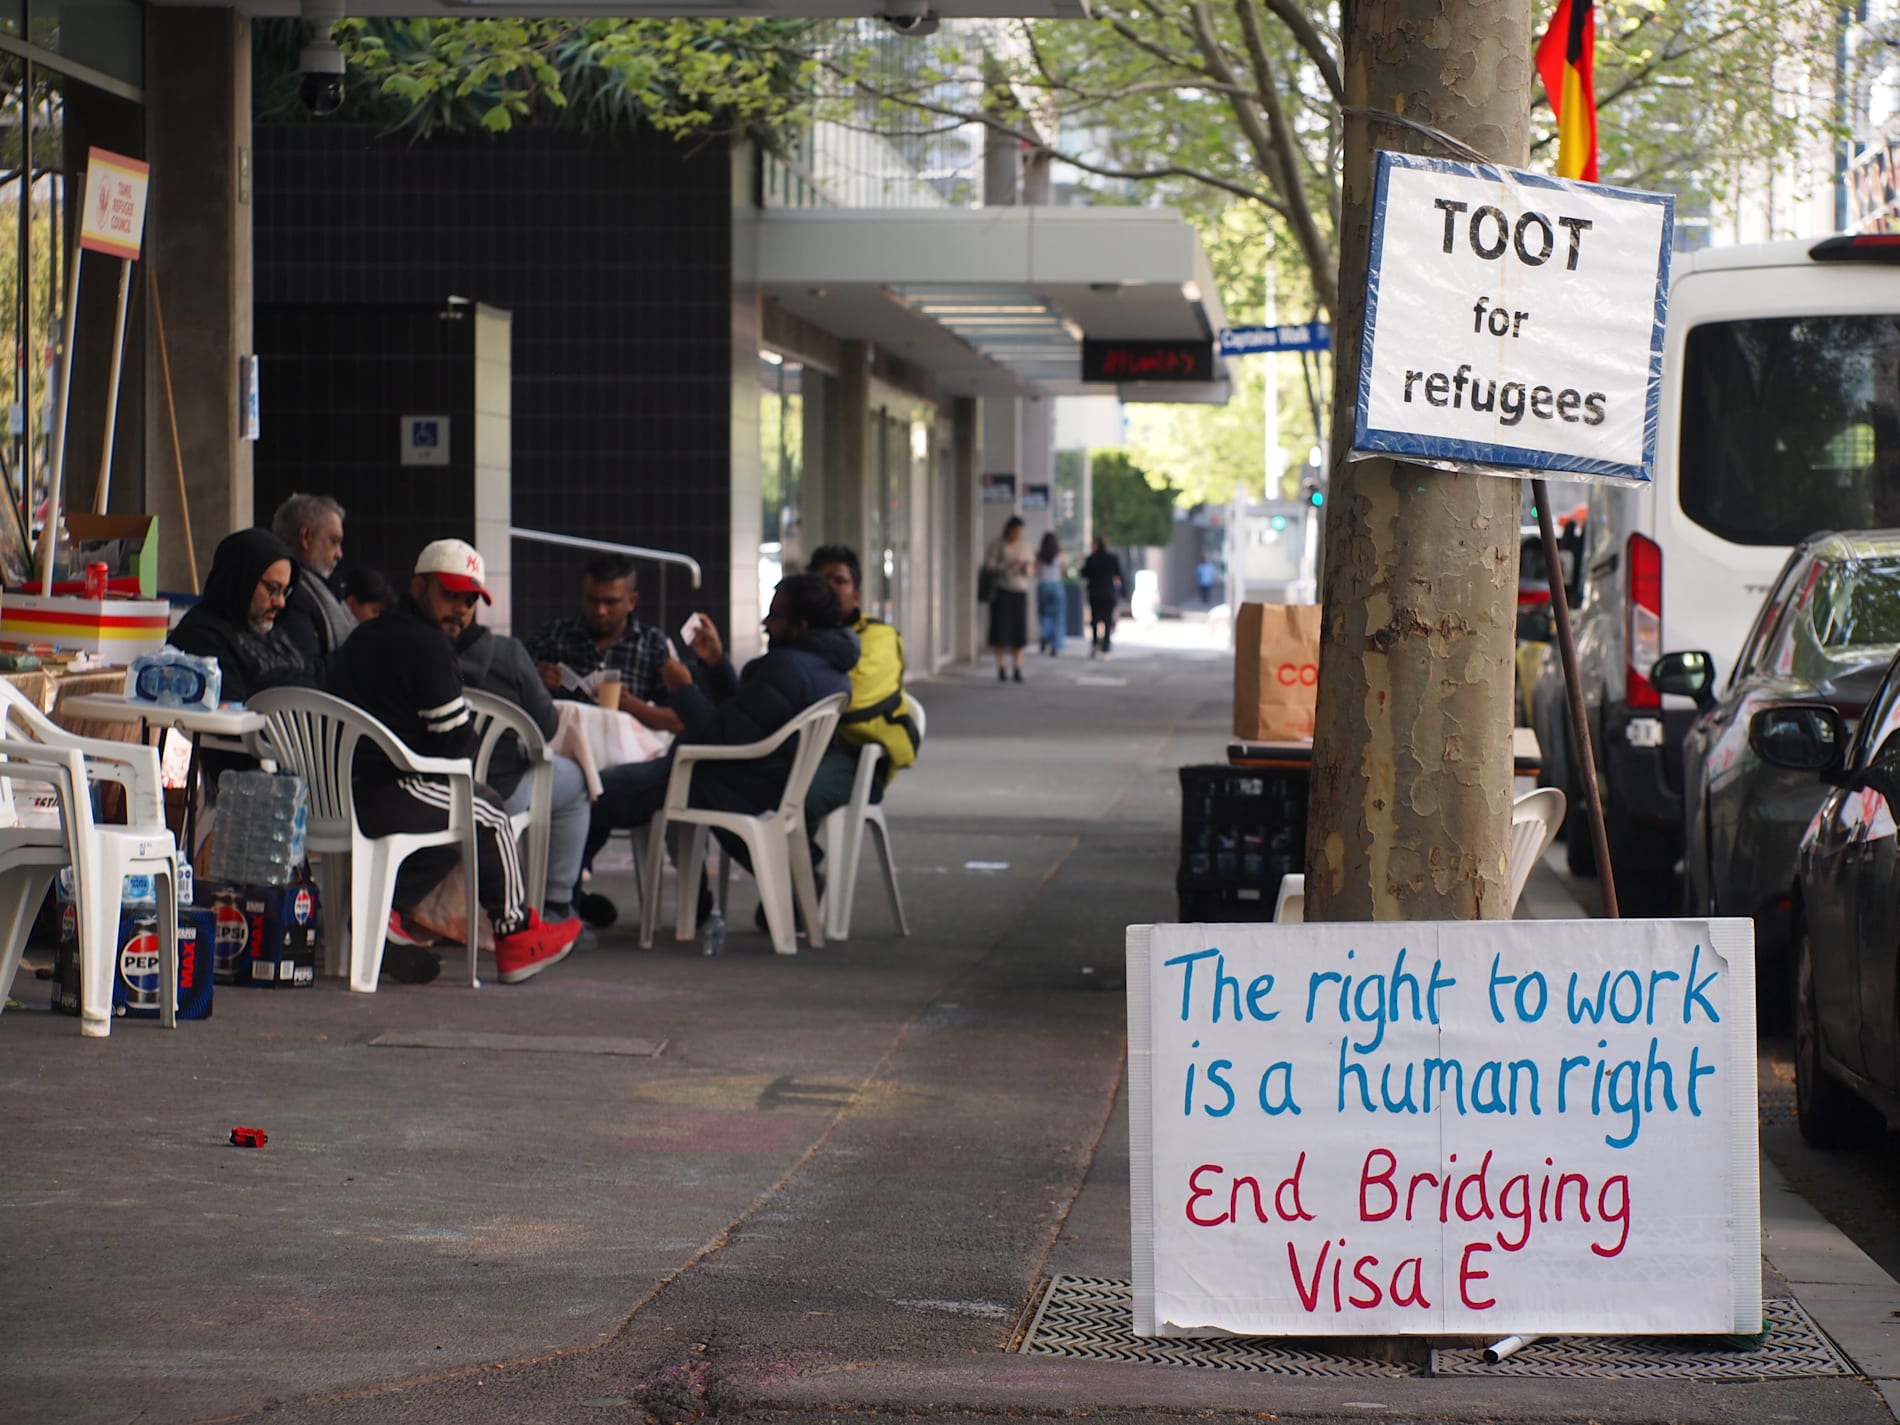 TAMIL
REFUGEE
COUNCIL
TOOT
for
refugees
Captains Walk
CO
PEPSI
MAX
PEPSI
MAX
The right to work
is a human right
End Bridging
Visa E